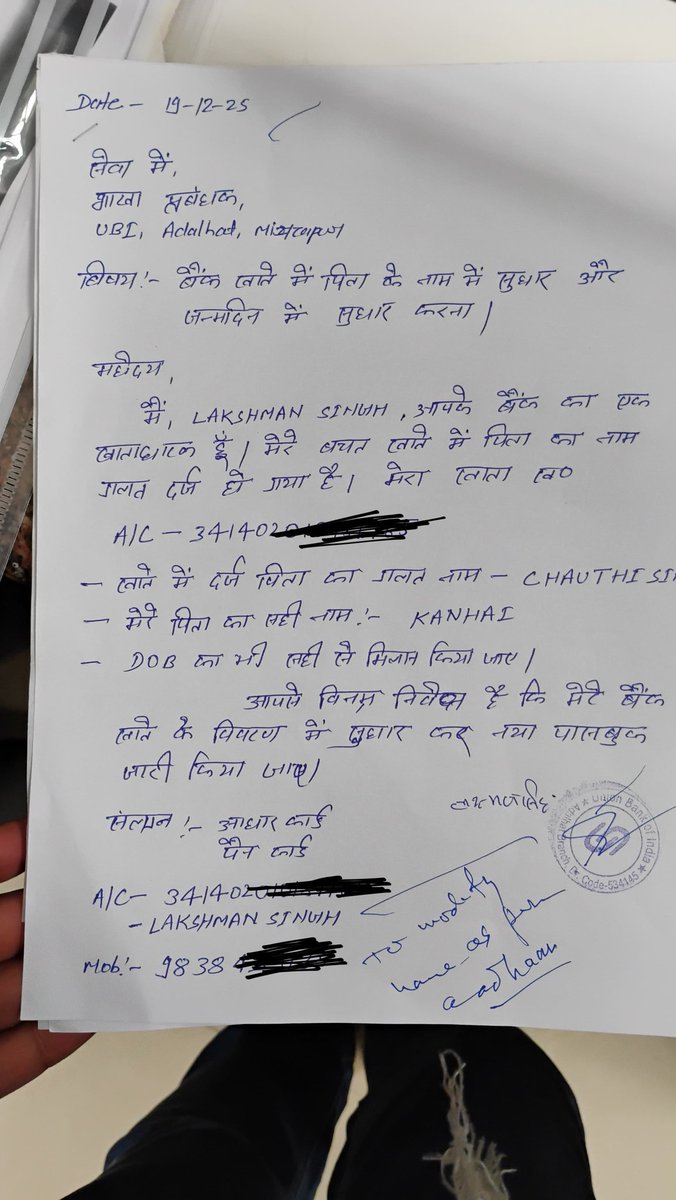 Date - 19-12-25
सेवा में,
शाखा प्रबंधक,
UBI, Adalhat, Mirzapur
विषय:- बैंक खाते में पिता के नाम में सुधार और
जन्मदिन में सुधार करना।
महोदय,
मैं, LAKSHMAN SINGH, आपके बैंक का एक
खाताधारक हूँ। मेरे बचत खाते में पिता का नाम
गलत दर्ज हो गया है। मेरा खाता सं०
A/C - 341402
- खाते में दर्ज पिता का गलत नाम - CHAUTHI SIN
- मेरे पिता का सही नाम:- KANHAI
- DOB का भी सही से मिलान किया जाए।
आपसे विनम्र निवेदन है कि मेरे बैंक
खाते के विवरण में सुधार कर नया पासबुक
जारी किया जाए।
संलग्न:- आधार कार्ड
पैन कार्ड
Union Bank of India
Code-534145
A/C- 341402
- LAKSHMAN SINGH
Mob:- 9838
To modify
name as per
aadhaar